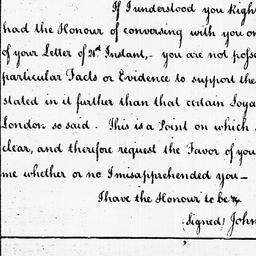 If I understood you Right
had the Honour of conversing with you on
of your Letter of Nt. Instant,- you are not posse
particular Facts or Evidence to support the
stated in it further than that certain Loya
London so said. This is a Point on which
clear, and therefore request the Favor of you
me whether or no I misapprehended you—
I have the Honour to be &
(Signed) John